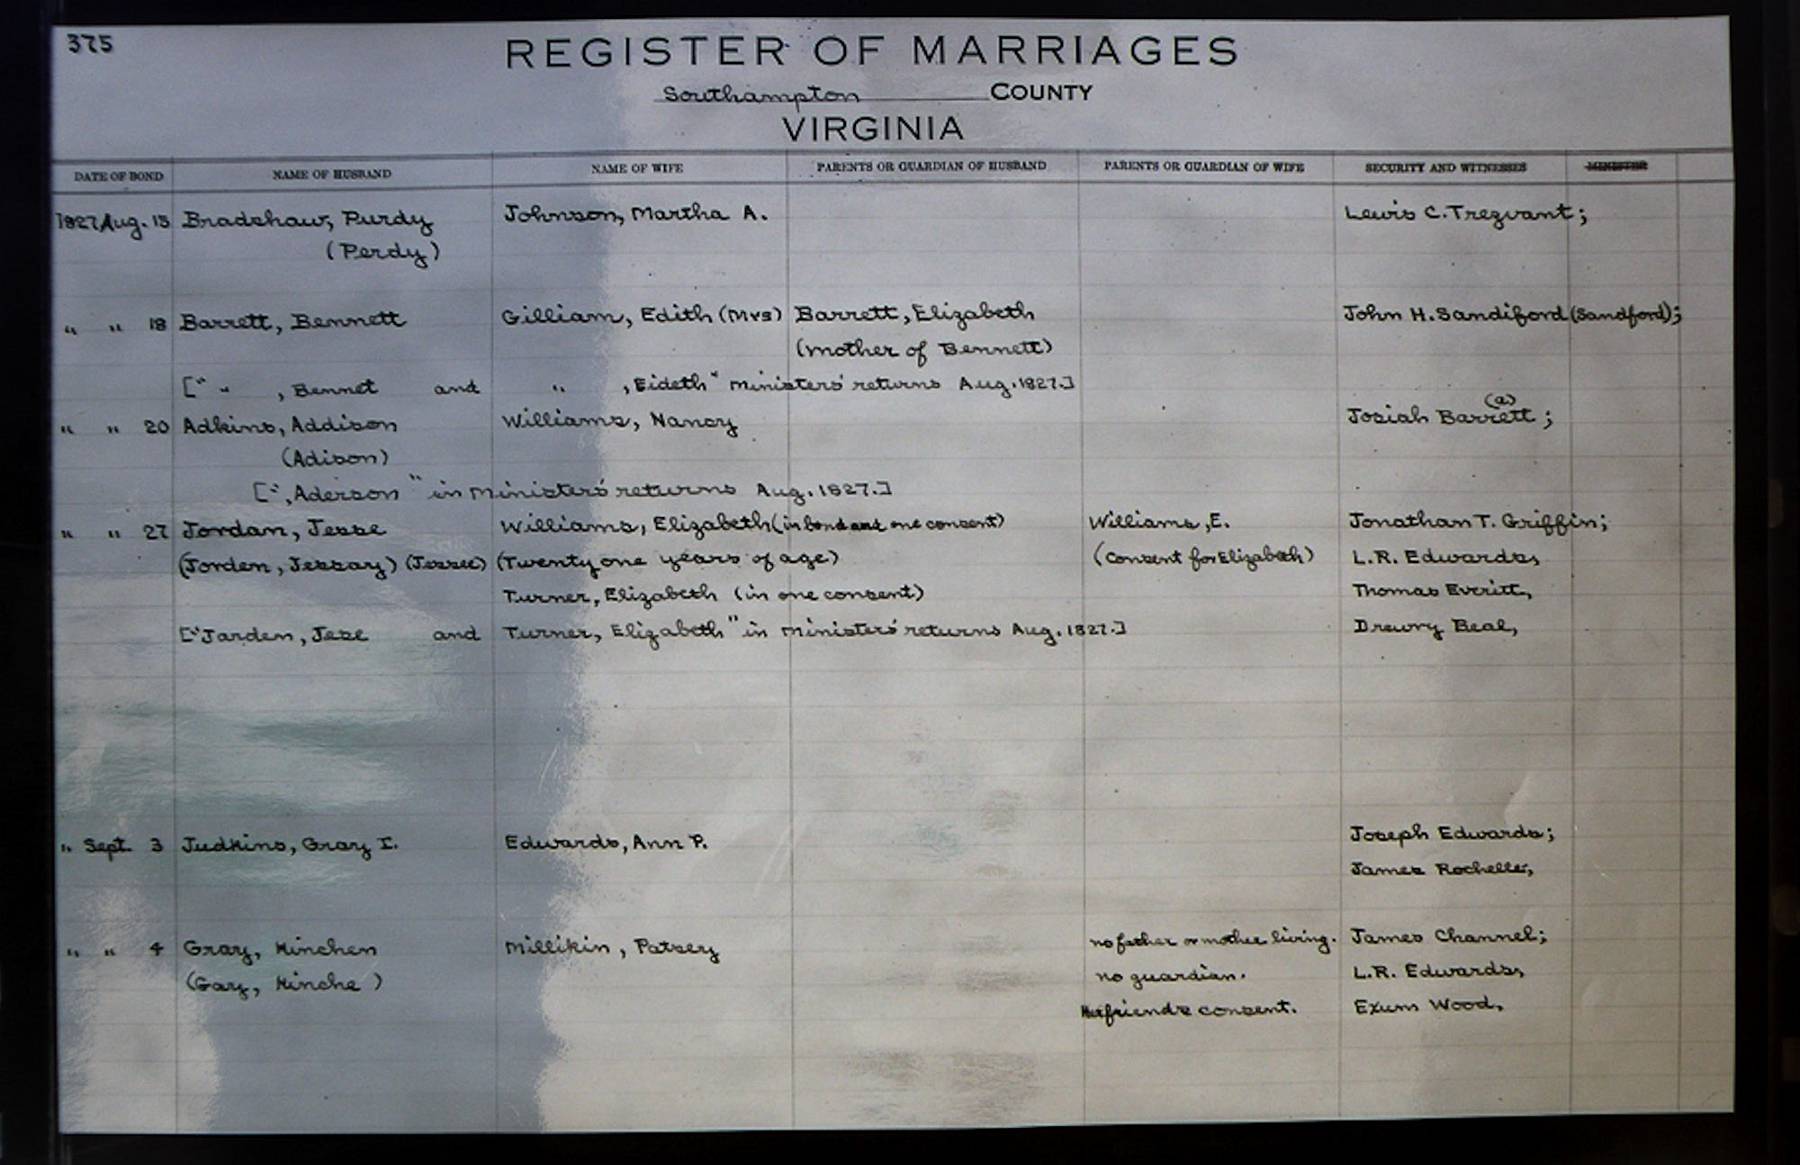 375
REGISTER OF MARRIAGES
Southampton COUNTY
VIRGINIA
DATE OF BOND NAME OF HUSBAND NAME OF WIFE PARENTS OR GUARDIAN OF HUSBAND PARENTS OR GUARDIAN OF WIFE SECURITY AND WITNESSES MINISTER
1827 Aug. 15 Bradshaw, Purdy Johnson, Martha A. Lewis C. Trezvant;
(Perdy)
" " 18 Barrett, Bennett Gilliam, Edith (Mrs) Barrett, Elizabeth John H. Sandiford (Sandford);
(mother of Bennett)
[" " , Bennet and " , Eideth" ministers' returns Aug. 1827.]
(a)
" " 20 Adkins, Addison Williams, Nancy Josiah Barrett;
(Adison)
[" , Aderson" in ministers' returns Aug. 1827.]
" " 27 Jordan, Jesse Williams, Elizabeth (in bond and one consent) Williams, E. Jonathan T. Griffin;
(Jorden, Jessay) (Jessee) (Twenty one years of age) (Consent for Elizabeth) L.R. Edwards,
Turner, Elizabeth (in one consent) Thomas Everitt,
["Jarden, Jese and Turner, Elizabeth" in ministers' returns Aug. 1827.] Drewry Beal,
" Sept. 3 Judkins, Gray I. Edwards, Ann P. Joseph Edwards;
James Rochelle,
" " 4 Gray, Hinchen Millikin, Patsey no father or mother living. James Channel;
(Gary, Hinche) no guardian. L.R. Edwards,
Her friends consent. Exum Wood,